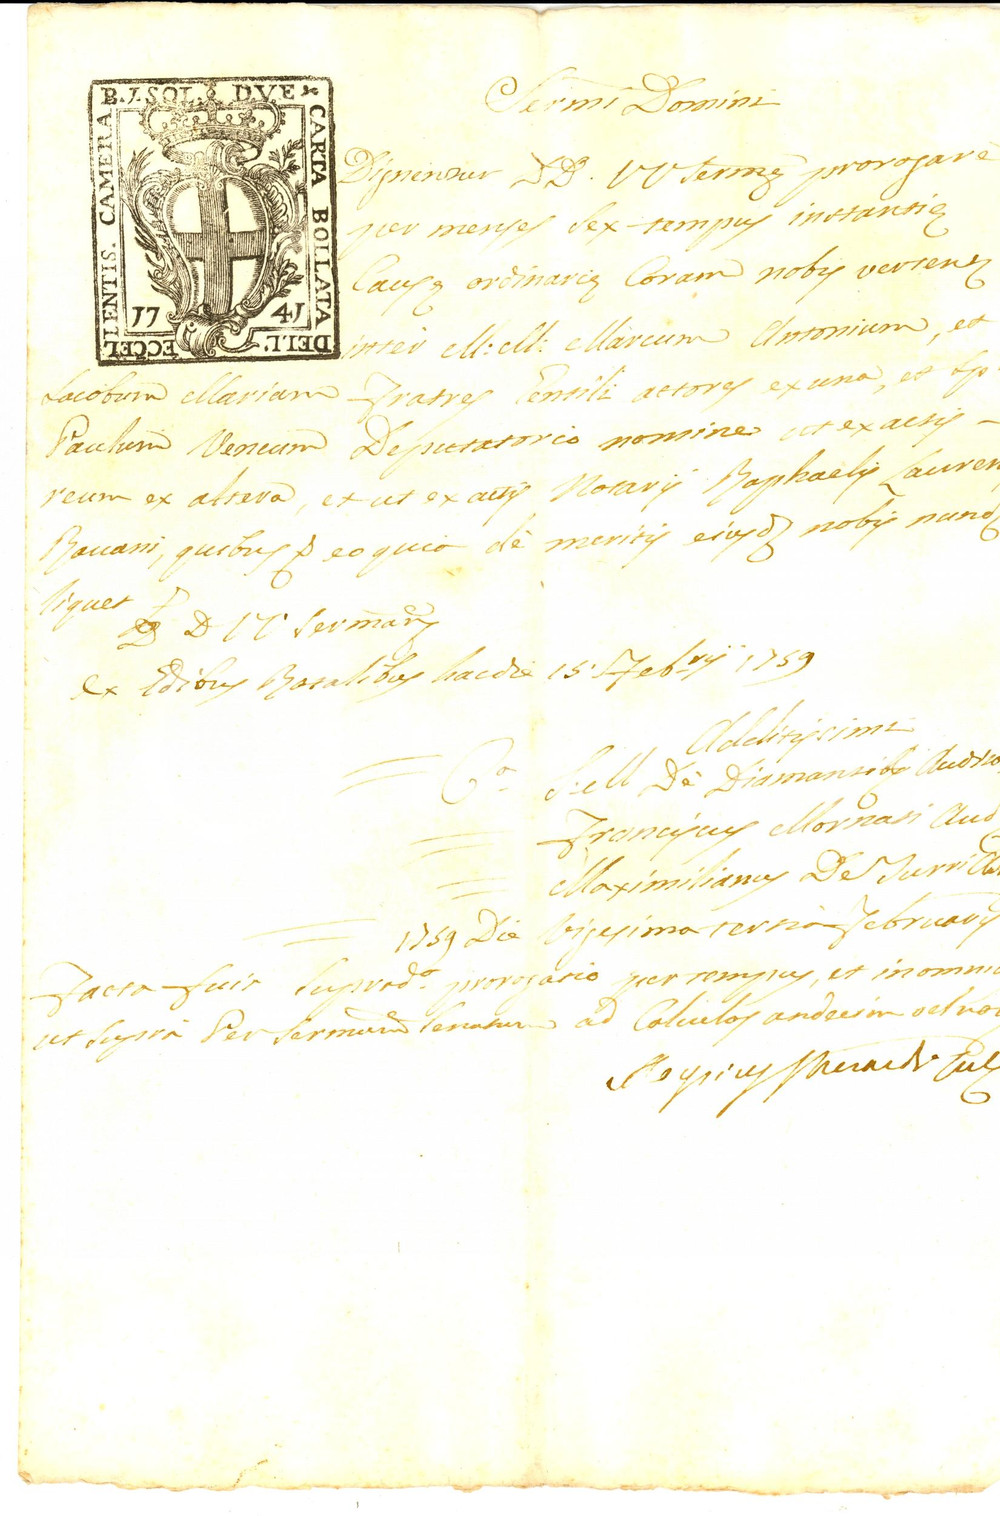 B. 7. SOL. DVE
CARTA BOLLATA
DELL'
ECCEL
LENTIS. CAMERA
17 41
Sermi Domini
Dignentur DD. VV Sermę prorogare
per menses sex tempus instantię
Causę ordinarię Coram nobis vertenę
inter M: M: Marcum Antonium, et
Jacobum Mariam Fratres actores ex una, et
Paulum Venetum Deputatorio nomine ut ex actis
reum ex altera, et ut ex actis Notarij Raphaelis Lauren
Bavani, quibus eo quia de meritis eiusd nobis nund
liquet
D VV Sermar
ex Edibus Rotalibus hac die 15 Febrij 1759
Additissimi
De Diamantibus Audito
Franciscus Mornasi Aud
Maximilianus De Turri
1759 Die Vigesima tertia Februarij
Facta fuit suprad.a prorogatio per tempus, et in omni
ut supra Per Sermum Senatum ad Calculos